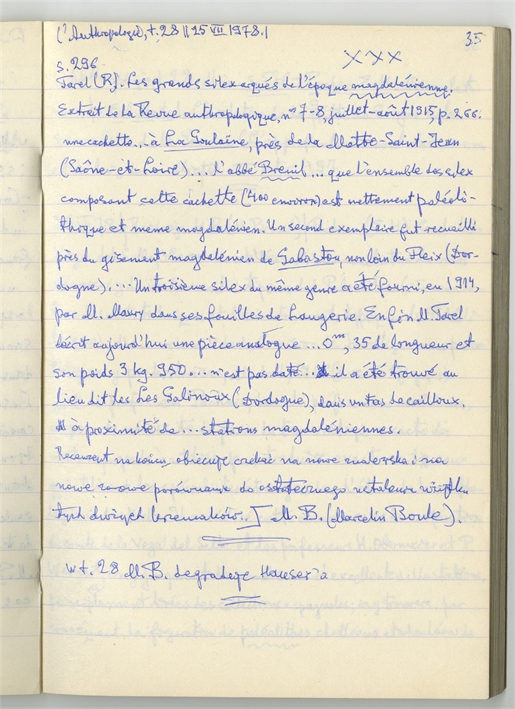 (l'Anthropologie), t. 28 || 25 VII 1978.|
35
XXX
s. 296
Tarel (R). Les grands silex arqués de l'époque magdalénienne.
Extrait de la Revue anthropologique, nos 7-8, juillet-août 1915 p. 266.
une cachette.. à La Goulaine, près de la Motte-Saint-Jean
(Saône-et-Loire).... l'abbé Breuil... que l'ensemble des silex
composant cette cachette (400 environ) est nettement paléoli-
thique et meme magdalénien. Un second exemplaire fut recueilli
près du gisement magdalénien de Sabastou non loin du Fleix (Dor-
dogne).... Un troisième silex du même genre a été fourni, en 1914,
par M. Maury dans ses fouilles de Laugerie. Enfin M. Tarel
décrit aujourd'hui une pièce analogue... 0m, 35 de longueur et
son poids 3 kg. 950... n'est pas daté... il a été trouvé au
lieu dit les Les Galinoux (Dordogne), dans un tas de cailloux.
à proximité de... stations magdaléniennes.
Recenzent na końcu, obiecuje czekać na nowe znalezisko i na
nowe porównanie do ostatecznego ustalenia wieku
tych dużych krzemieni. I M. B. (Marcelin Boule).
w t. 28 M. B. degraduje Hauser'a